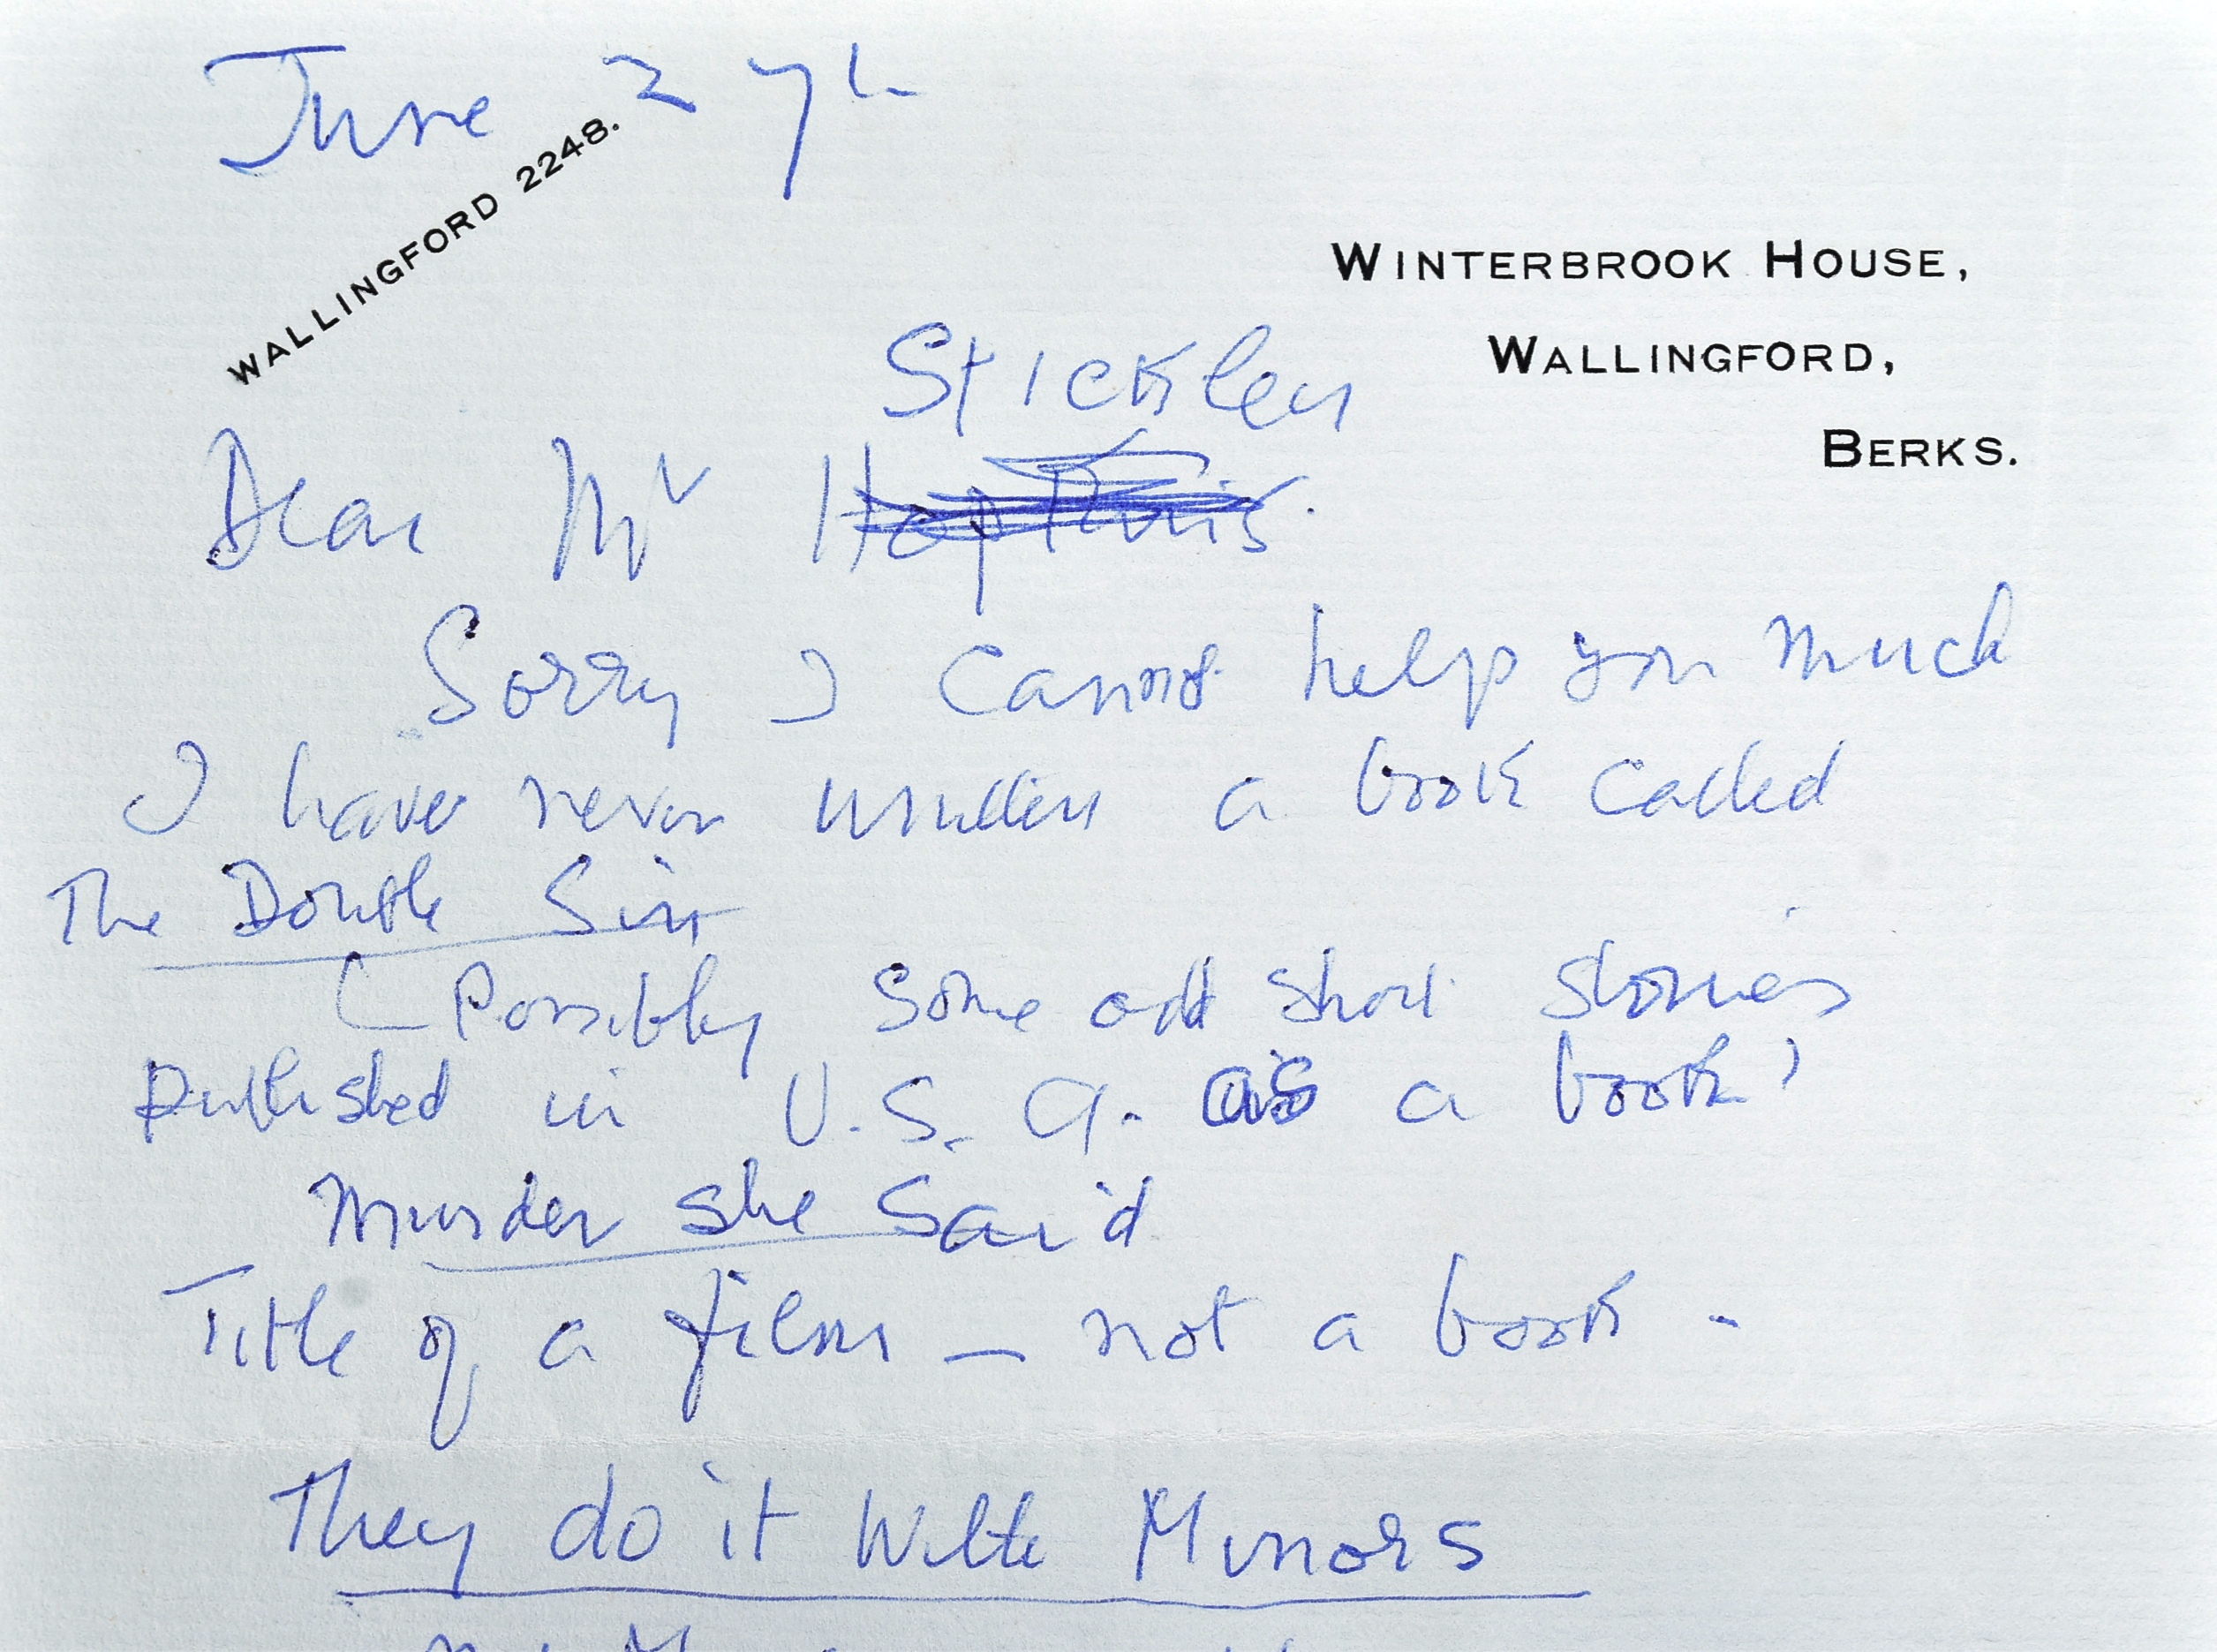 June 27th
WALLINGFORD 2248.
WINTERBROOK HOUSE,
WALLINGFORD,
BERKS.
Stickler
Dear Mr Hopkins.
Sorry I cannot help you much
I have never written a book called
The Double Sin
Possibly some odd short stories
published in U.S.A. as a book?
Murder she Said
Title of a film – not a book –
They do it With Mirrors